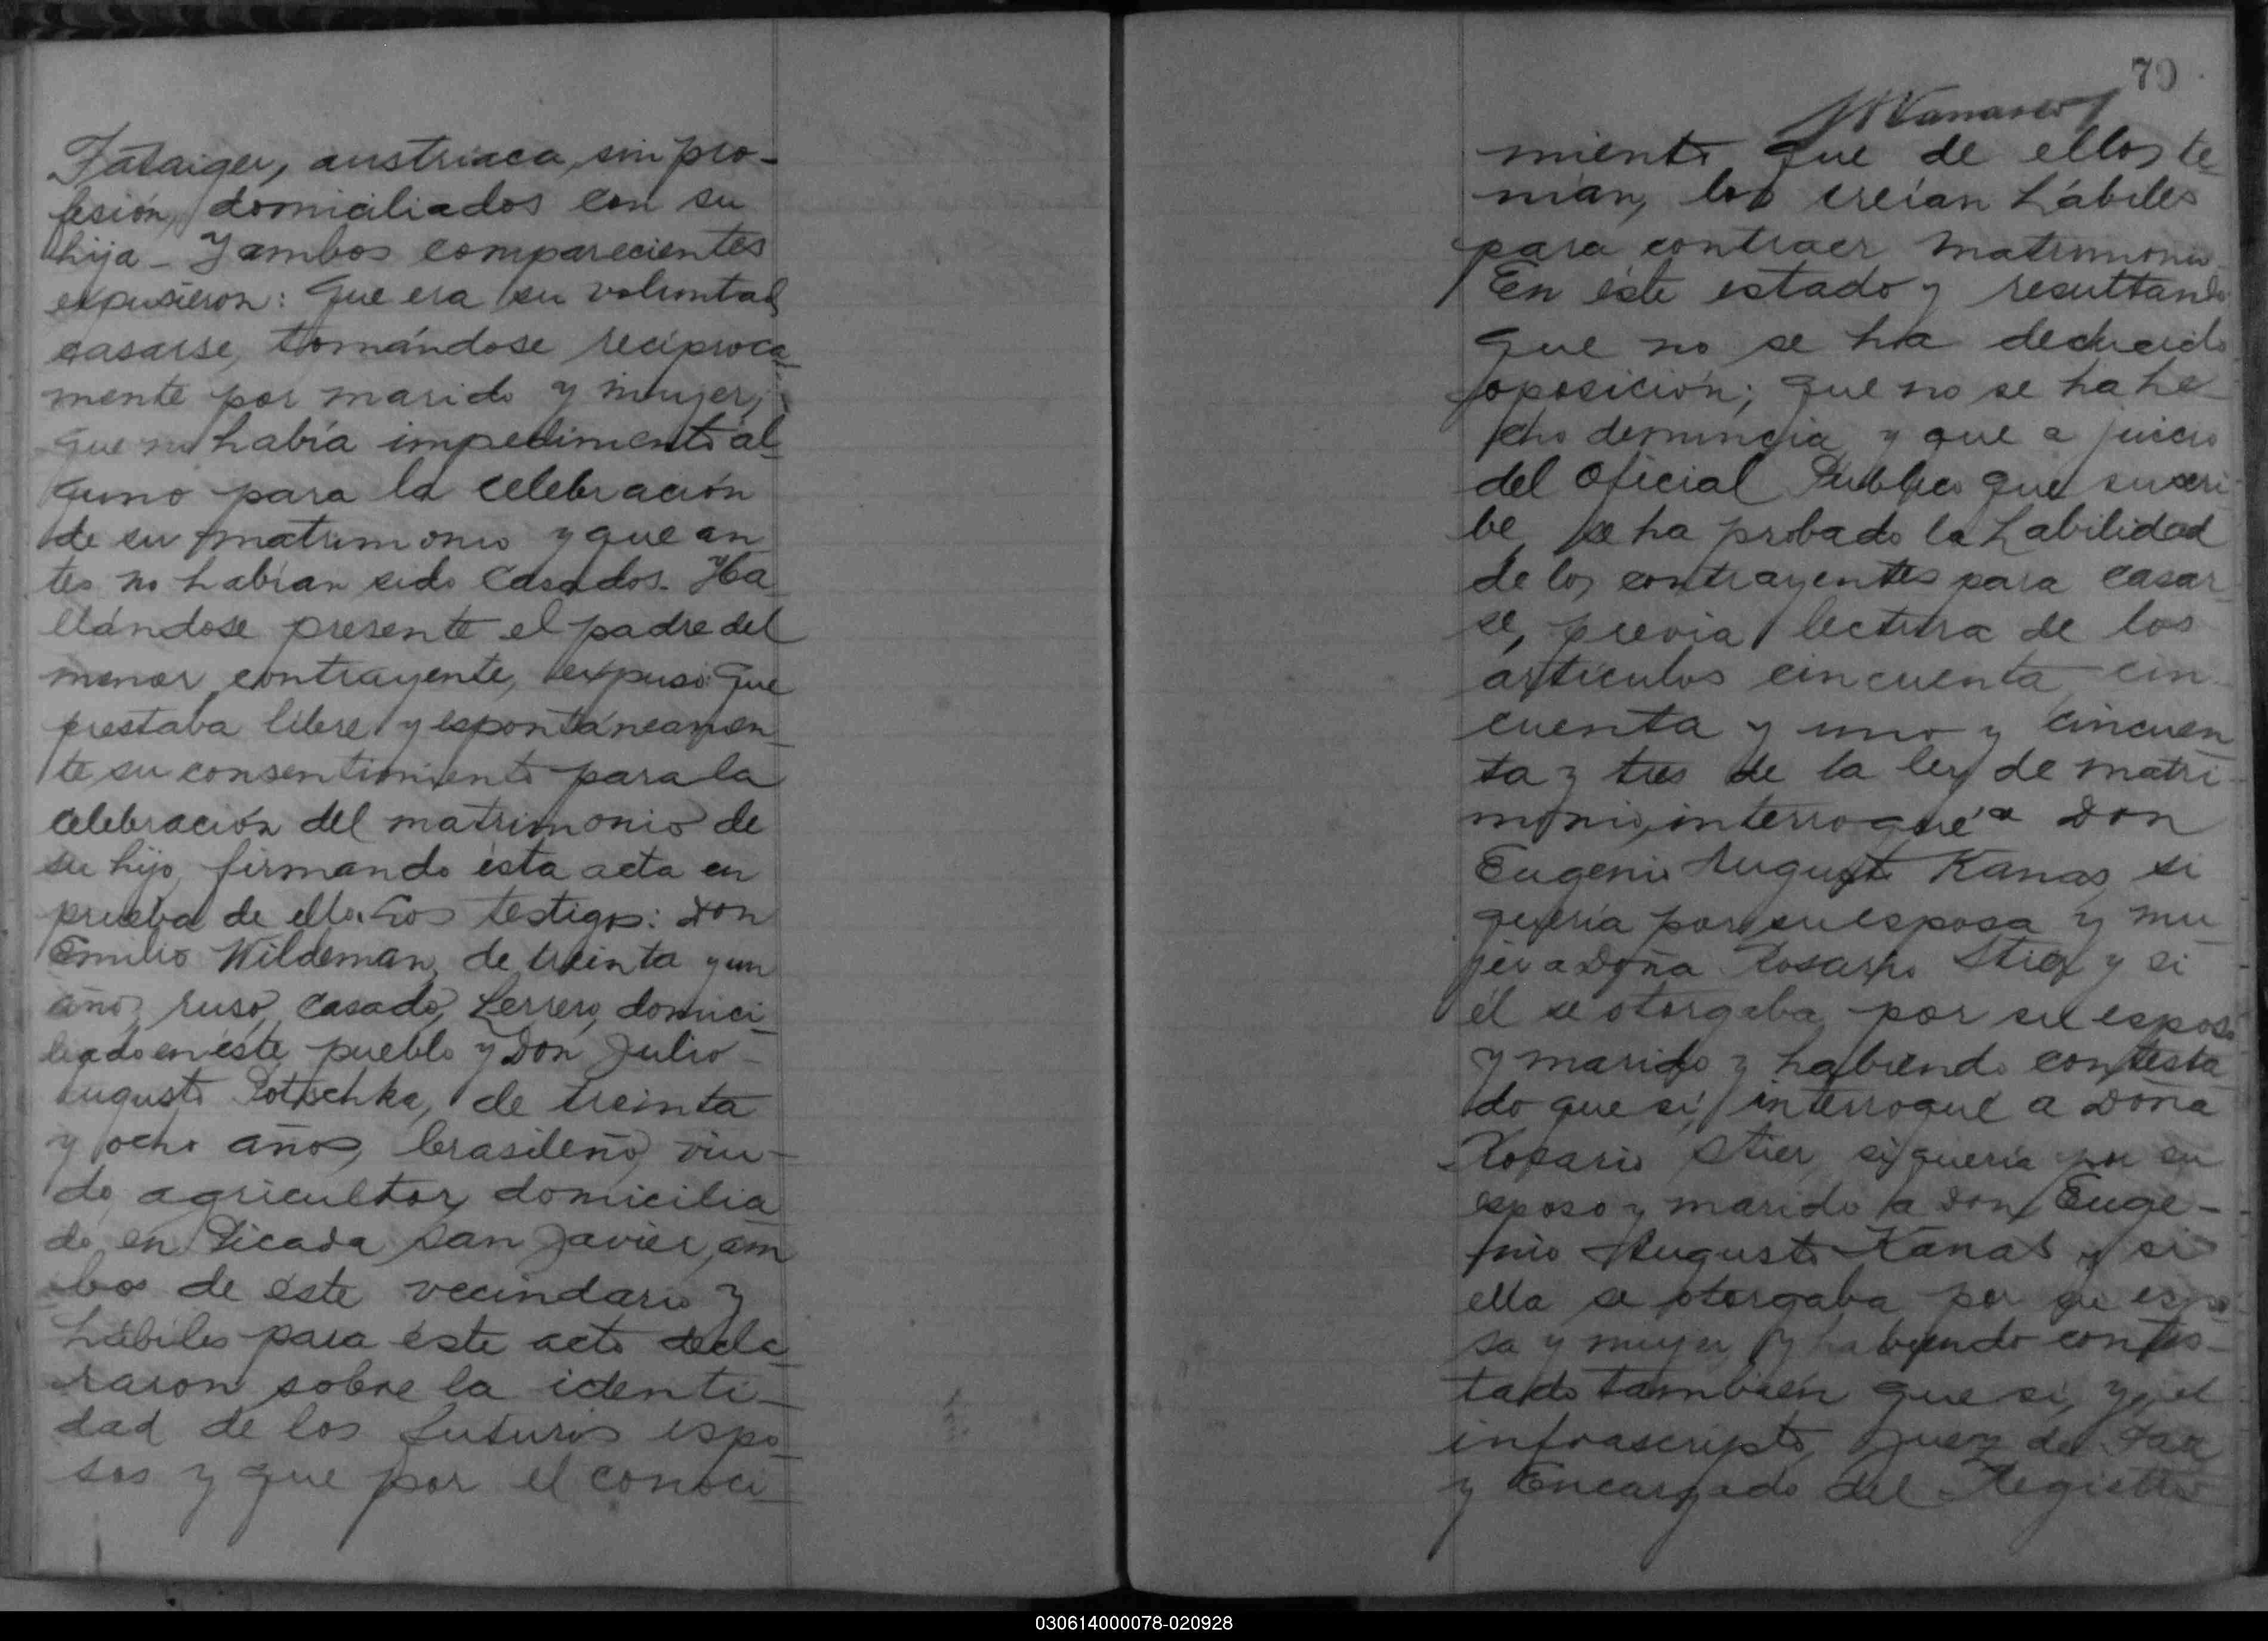 Fataiger, austriaca, sin pro-
fesión, domiciliados con su
hija - Y ambos comparecientes
expusieron: Que era su voluntad
casarse, tomándose recíproca-
mente por marido y mujer;
que no había impedimento al-
guno para la celebración
de su matrimonio y que an-
tes no habían sido casados. Ha-
llándose presente el padre del
menor contrayente, expuso: Que
prestaba libre y espontáneamen-
te su consentimiento para la
celebración del matrimonio de
su hijo, firmando ésta acta en
prueba de ello. Los testigos: Don
Emilio Wildeman, de treinta y un
año, ruso, casado, herrero, domici-
liado en éste pueblo y Don Julio
Augusto Potschka, de treinta
y ocho años, brasileño, viu-
do, agricultor, domicilia
do en Picada San Javier, am
bos de éste vecindario y
hábiles para éste acto decla-
raron sobre la identi-
dad de los futuros espo-
sos y que por el conoci-
70
miento que de ellos te-
nían, los creían hábiles
para contraer matrimonio
En éste estado y resultando
que no se ha deducido
oposición; que no se ha he-
cho denuncia y que a juicio
del Oficial Publico que suscri-
be, se ha probado la habilidad
de los contrayentes para casar
se, previa lectura de los
artículos cincuenta, cin-
cuenta y uno y cincuen
ta y tres de la ley de matri-
monio, interrogué a Don
Eugenio Augusto Kanas, si
quería por su esposa y mu
jer a Doña Rosario Stier y si
él se otorgaba por su esposo
y marido y habiendo contesta
do que sí, interrogué a Doña
Rosario Stier, si quería por su
esposo y marido a Don Euge-
nio Augusto Kanas y si
ella se otorgaba por su espo
sa y mujer y habiendo contes-
tado también que sí, yo, el
infrascripto, Juez de Paz
y Encargado del Registro
030614000078-020928